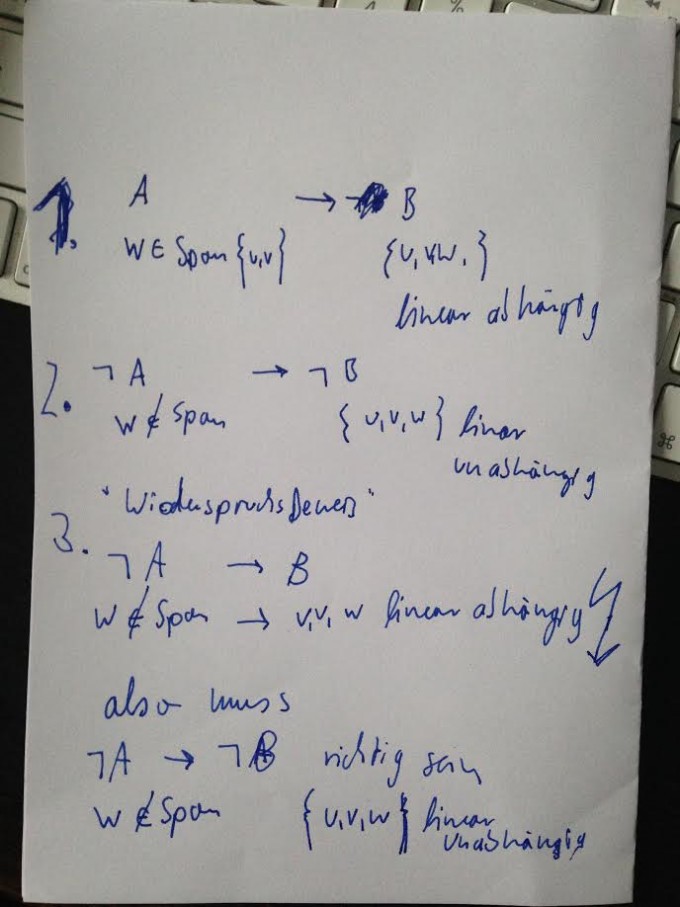 1. A → ¬ B
W ∈ Span {u,v} {u, v, w, }
linear abhängig
2. ¬ A → ¬ B
W ∉ Span { u, v, w } linear
unabhängig
"Widerspruchsbeweis"
3. ¬ A → B
W ∉ Span → v, v, w linear abhängig
also muss
¬A → ¬B richtig sein
W ∉ Span { u, v, w } linear
unabhängig